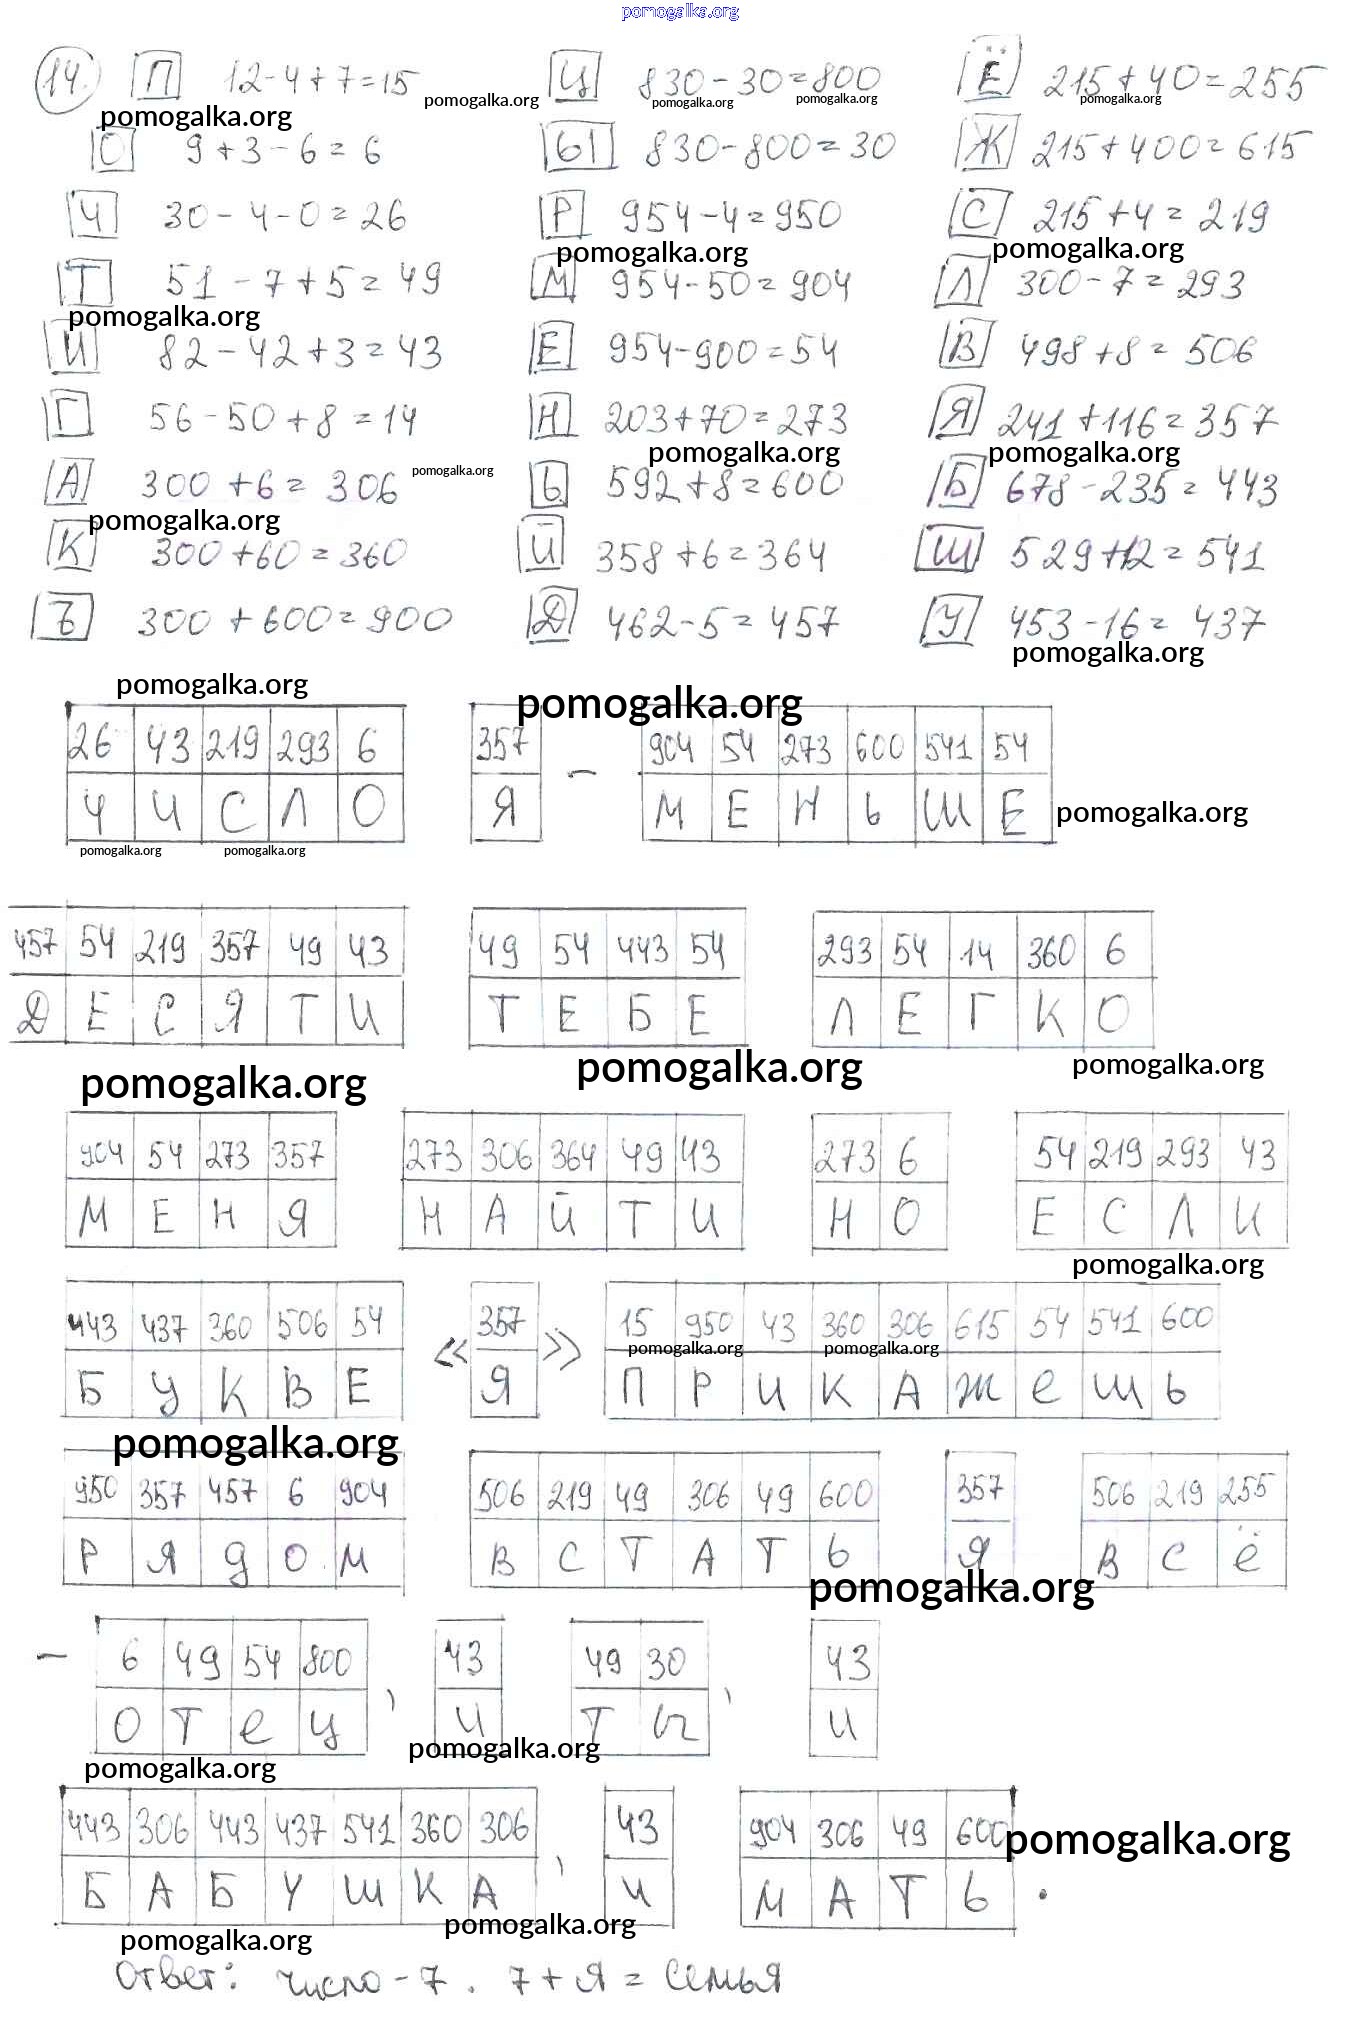 pomogalka.org
14. П 12-4+7=15 Ц 830-30=800 Ё 215+40=255
pomogalka.org pomogalka.org pomogalka.org pomogalka.org pomogalka.org
О 9+3-6=6 Ы 830-800=30 Ж 215+400=615
Ч 30-4-0=26 Р 954-4=950 С 215+4=219
pomogalka.org pomogalka.org
Т 51-7+5=49 М 954-50=904 Л 300-7=293
pomogalka.org
И 82-42+3=43 Е 954-900=54 В 498+8=506
Г 56-50+8=14 Н 203+70=273 Я 241+116=357
pomogalka.org pomogalka.org pomogalka.org
А 300+6=306 Ь 592+8=600 Б 678-235=443
pomogalka.org
К 300+60=360 Й 358+6=364 Ш 529+12=541
Ъ 300+600=900 Д 462-5=457 У 453-16=437
pomogalka.org
pomogalka.org pomogalka.org
26 43 219 293 6 357 904 54 273 600 541 54
Ч И С Л О Я - М Е Н Ь Ш Е
pomogalka.org
pomogalka.org pomogalka.org
457 54 219 357 49 43 49 54 443 54 293 54 14 360 6
Д Е С Я Т И Т Е Б Е Л Е Г К О
pomogalka.org pomogalka.org pomogalka.org
904 54 273 357 273 306 364 49 43 273 6 54 219 293 43
М Е Н Я Н А Й Т И Н О Е С Л И
pomogalka.org
443 437 360 506 54 « 357 » 15 950 43 360 306 615 54 541 600
pomogalka.org pomogalka.org
Б У К В Е Я П Р И К А Ж е ш ь
pomogalka.org
950 357 457 6 904 506 219 49 306 49 600 357 506 219 255
Р Я д о м В С Т А Т Ь Я В С ё
pomogalka.org
- 6 49 54 800 43 49 30 43
О Т е ц , И Т Ы , И
pomogalka.org
pomogalka.org
443 306 443 437 541 360 306 43 904 306 49 600
pomogalka.org
Б А Б У Ш К А , И М А Т Ь .
pomogalka.org
pomogalka.org
Ответ: число - 7. 7 + Я = Семья